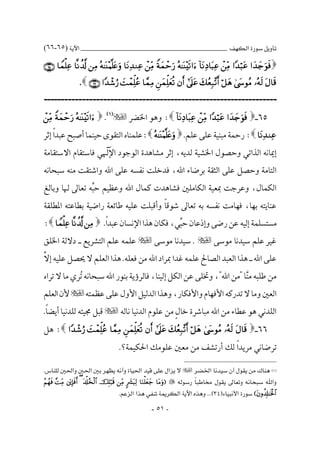 تأويل سورة الكهف الآية (٦٥-٦٦)
﴿ فَوَجَدَا عَبْدًا مِّنْ عِبَادِنَآ ءَاتَيْنَٰهُ رَحْمَةً مِّنْ عِندِنَا وَعَلَّمْنَٰهُ مِن لَّدُنَّا عِلْمًا ۝
قَالَ لَهُۥ مُوسَىٰ هَلْ أَتَّبِعُكَ عَلَىٰٓ أَن تُعَلِّمَنِ مِمَّا عُلِّمْتَ رُشْدًا ۝ ﴾.
٦٥-﴿ فَوَجَدَا عَبْدًا مِّنْ عِبَادِنَآ ﴾: وهو الخضر ﵇(١). ﴿ ءَاتَيْنَٰهُ رَحْمَةً مِّنْ
عِندِنَا ﴾: رحمة مبنية على علم. ﴿ وَعَلَّمْنَٰهُ ﴾: علمناه التقوى حينما أصبح عبداً إثر
إيمانه الذاتي وحصول الخشية لديه، إثر مشاهدة الوجود الإلۤهي فاستقام الاستقامة
التامة وحصل على الثقة برضاء الله، فدخلت نفسه على الله واشتقت منه سبحانه
الكمال، وعرجت بمعية الكاملين فشاهدت كمال الله وعظيم حبِّه تعالى لها وبالغ
عنايته بها، فهامت نفسه به تعالى شوقاً وأقبلت عليه طائعة راضية بطاعته المطلقة
مستسلمة إليه عن رضى وإذعان حبِّي، فكان هذا الإنسان عبداً. ﴿ مِن لَّدُنَّا عِلْمًا ﴾:
غير علم سيدنا موسى ﵇. سيدنا موسى ﵇ علمه علم التشريع ـ دلالة الخلق
على الله ـ هذا العبد الصالح علمه غدا بمراد الله من فعله. هذا العلم لا يحصل عليه إلاَّ
من طلبه منَّا "من الله"، وتخلى عن الكل إلينا، فالرؤية بنور الله سبحانه تُري ما لا تراه
العين وما لا تدركه الأفهام والأفكار، وهذا الدليل الأول على عظمته ﵇ لأن العلم
اللدني هو عطاء من الله مباشرة خالٍ من علوم الدنيا ناله ﵇ قبل مجيئه للدنيا أيضاً.
٦٦-﴿ قَالَ لَهُۥ مُوسَىٰ هَلْ أَتَّبِعُكَ عَلَىٰٓ أَن تُعَلِّمَنِ مِمَّا عُلِّمْتَ رُشْدًا ﴾: هل
ترضاني مريداً لك أرتشف من معين علومك الحكيمة؟.
(١) هناك من يقول أن سيدنا الخضر ﵇ لا يزال على قيد الحياة وأنه يظهر بين الحين والحين للناس.
والله سبحانه وتعالى يقول مخاطباً رسوله ﷺ ﴿ وَمَا جَعَلْنَا لِبَشَرٍ مِّن قَبْلِكَ ٱلْخُلْدَ ۖ أَفَإِي۟ن مِّتَّ فَهُمُ
ٱلْخَٰلِدُونَ ﴾ سورة الأنبياء(٣٤)... وهذه الآية الكريمة تنفي هذا الزعم.
- ٥١ -